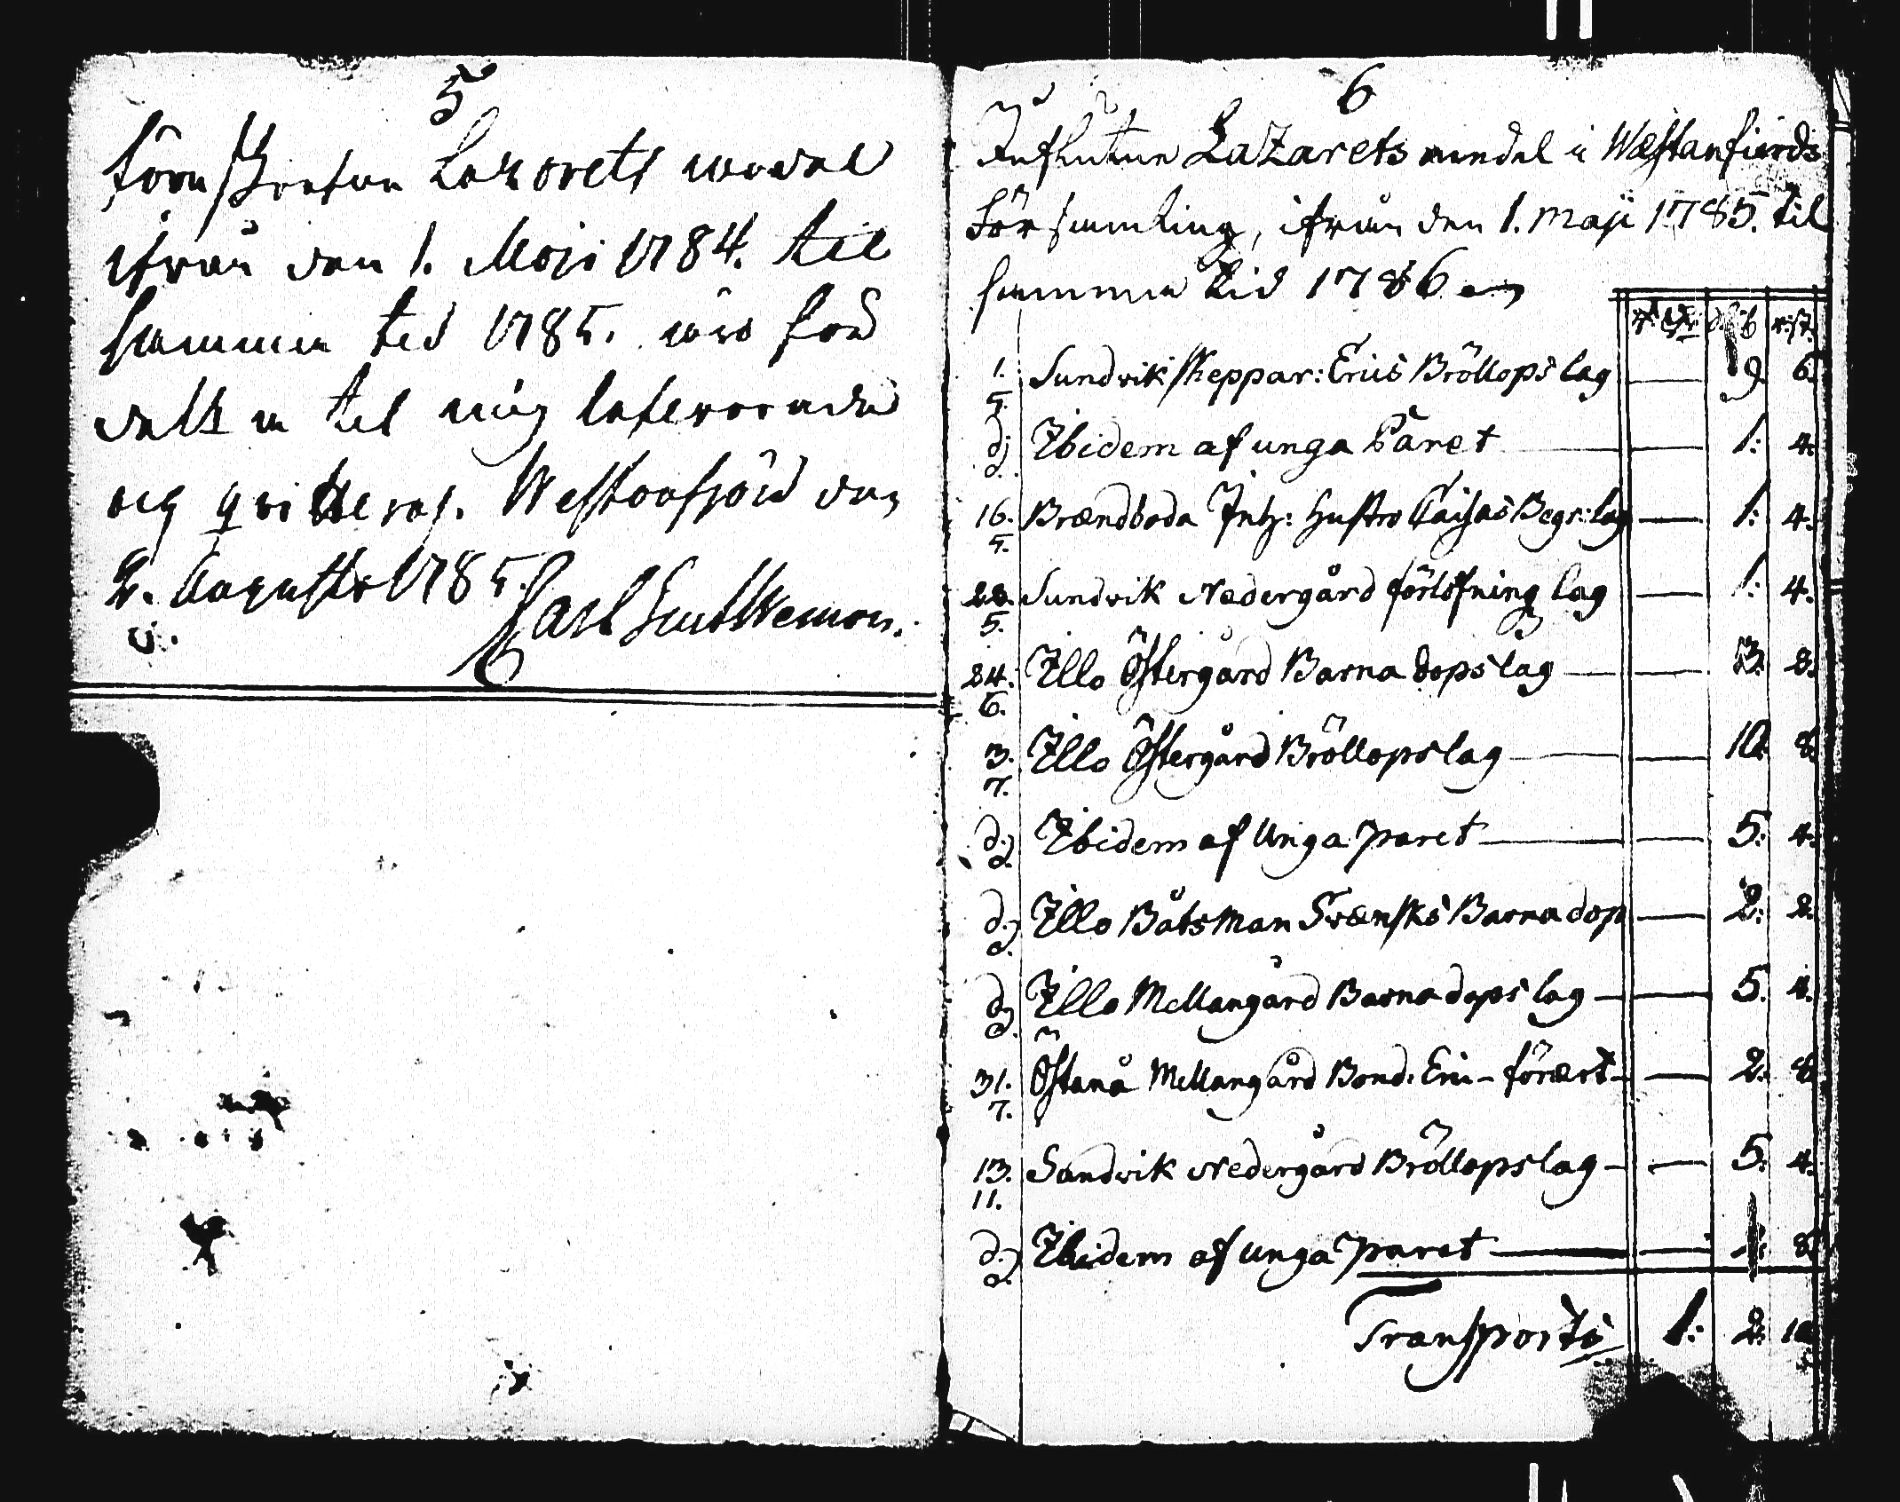 5
förenskrefne Lazarets medel
ifrån den 1. Maji 1784. til
samma tid 1785.
til mig lefererade
og qvitteras. Westanfjerd den
2. Augusti 1785.
Carl
6
Influtne Lazarets medel i Wæstanfierds
församling, ifrån den 1. Maji 1785. til
samma tid 1786
1. 5. Sundvik Skeppar: Erics Bröllops lag — 9. 6.
d:o d. Ibidem af unga Paret — 1. 4.
16. 5. Brændboda Inh: hustro Caisas Begr: lag — 1. 4.
28. 5. Sundvik Nedergård förlofning lag — 1. 4.
24. 6. Illo Östergård Barna dops lag — 3. 8.
3. 7. Illo Östergård Bröllops lag — 10. 8.
d:o d. Ibidem af Unga paret — 5. 4.
d:o d. Illo Båtsman Svænsks Barnadop — 2. 2.
d:o d. Illo Mellangård Barnadops lag — 5. 4.
31. 7. Östanå Mellangård Bond: Eric förært — 2. 8.
13. 11. Sandvik Nedergård Bröllops lag — 5. 4.
d:o d. Ibidem af unga paret — 8.
Transporto 1. 2. 10